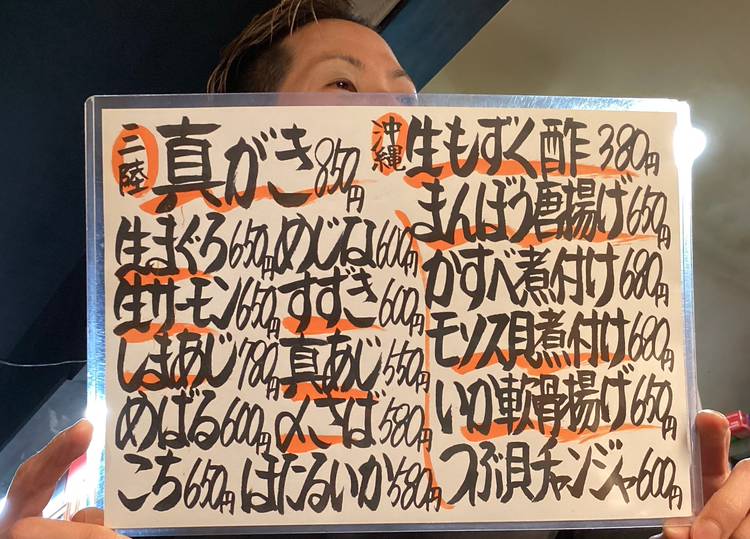 三陸 真がき 850円
生まぐろ 650円 めじな 600円
生サーモン 650円 すずき 600円
しまあじ 780円 真あじ 550円
めばる 600円 〆さば 580円
こち 650円 ほたるいか 580円
沖縄 生もずく酢 380円
まんぼう唐揚げ 650円
かすべ煮付け 680円
モソス貝煮付け 680円
いか軟骨揚げ 650円
つぶ貝チャンジャ 600円